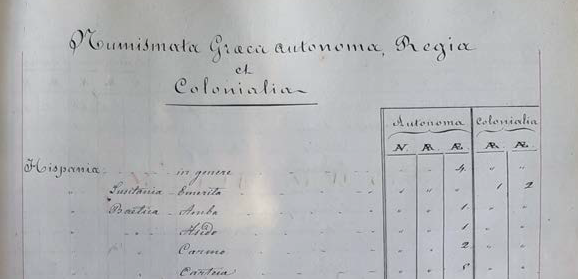 Numismata Graeca autonoma, Regia
et
Colonialia
Autonoma Colonialia
N. Æ. Æ. Æ. Æ.
Hispania in genere " " 4 " "
" Lusitania Emerita " " " 1 2
" Baetica Amba " " 1 " "
" " " " 1 " "
" Carmo " " 2 " "
" Carteia " "